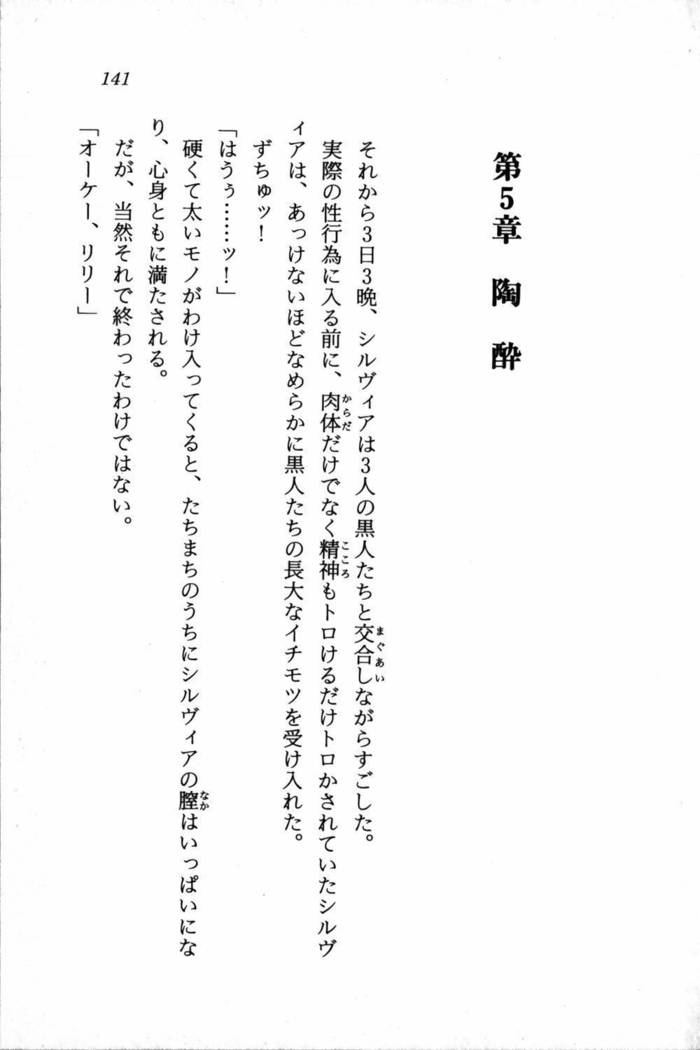 141
第5章 陶酔
それから3日3晩、シルヴィアは3人の黒人たちと交合しながらすごした。
実際の性行為に入る前に、肉体だけでなく精神もトロけるだけトロかされていたシルヴ
ィアは、あっけないほどなめらかに黒人たちの長大なイチモツを受け入れた。
ずちゅッ！
「はうぅ……ッ！」
硬くて太いモノがわけ入ってくると、たちまちのうちにシルヴィアの膣はいっぱいにな
り、心身ともに満たされる。
だが、当然それで終わったわけではない。
「オーケー、リリー」
まぐあい
からだ
こころ
なか